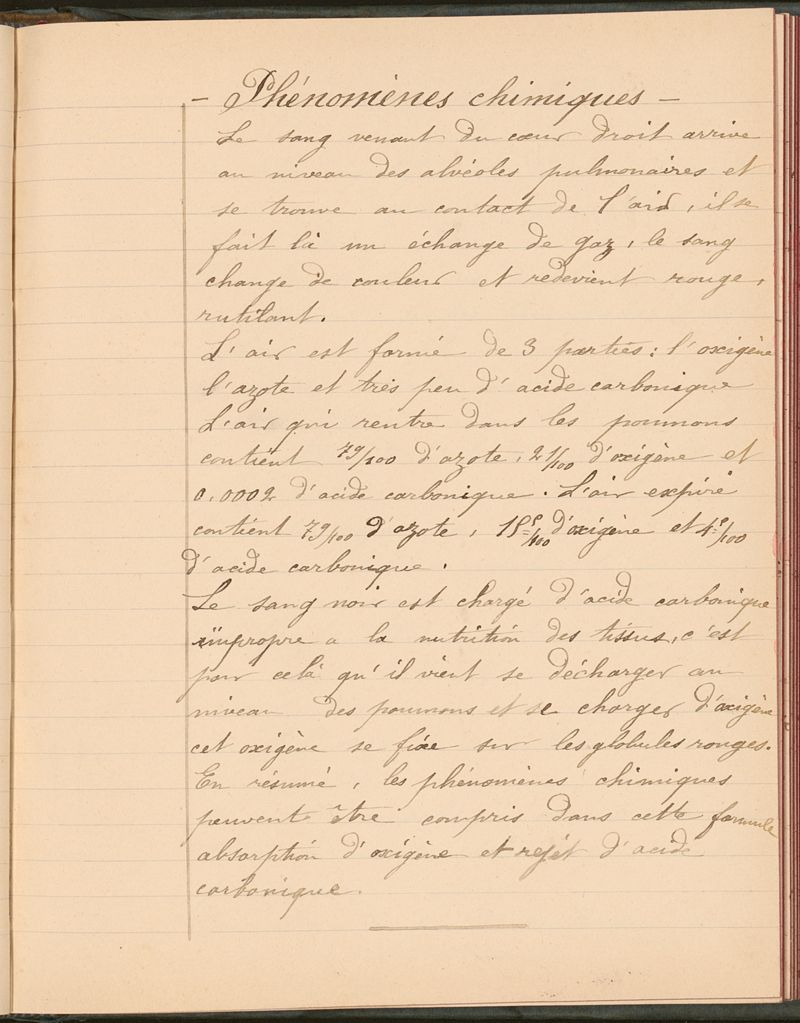 - Phénomènes chimiques -
Le sang venant du cœur droit arrive
au niveau des alvéoles pulmonaires et
se trouve au contact de l'air, il se
fait là un échange de gaz, le sang
change de couleur et redevient rouge,
rutilant.
L'air est formé de 3 parties : l'oxigène
l'azote et très peu d'acide carbonique
L'air qui rentre dans les poumons
contient 79/100 d'azote, 21/100 d'oxigène et
0,0002 d'acide carbonique. L'air expiré
contient 79/100 d'azote, 15/100 d'oxigène et 4/100
d'acide carbonique.
Le sang noir est chargé d'acide carbonique
impropre a la nutrition des tissus, c'est
pour celà qu'il vient se décharger au
niveau des poumons et se charger d'oxigène
cet oxigène se fixe sur les globules rouges.
En résumé, les phénomènes chimiques
peuvent être compris dans cette formule
absorption d'oxigène et rejèt d'acide
carbonique.